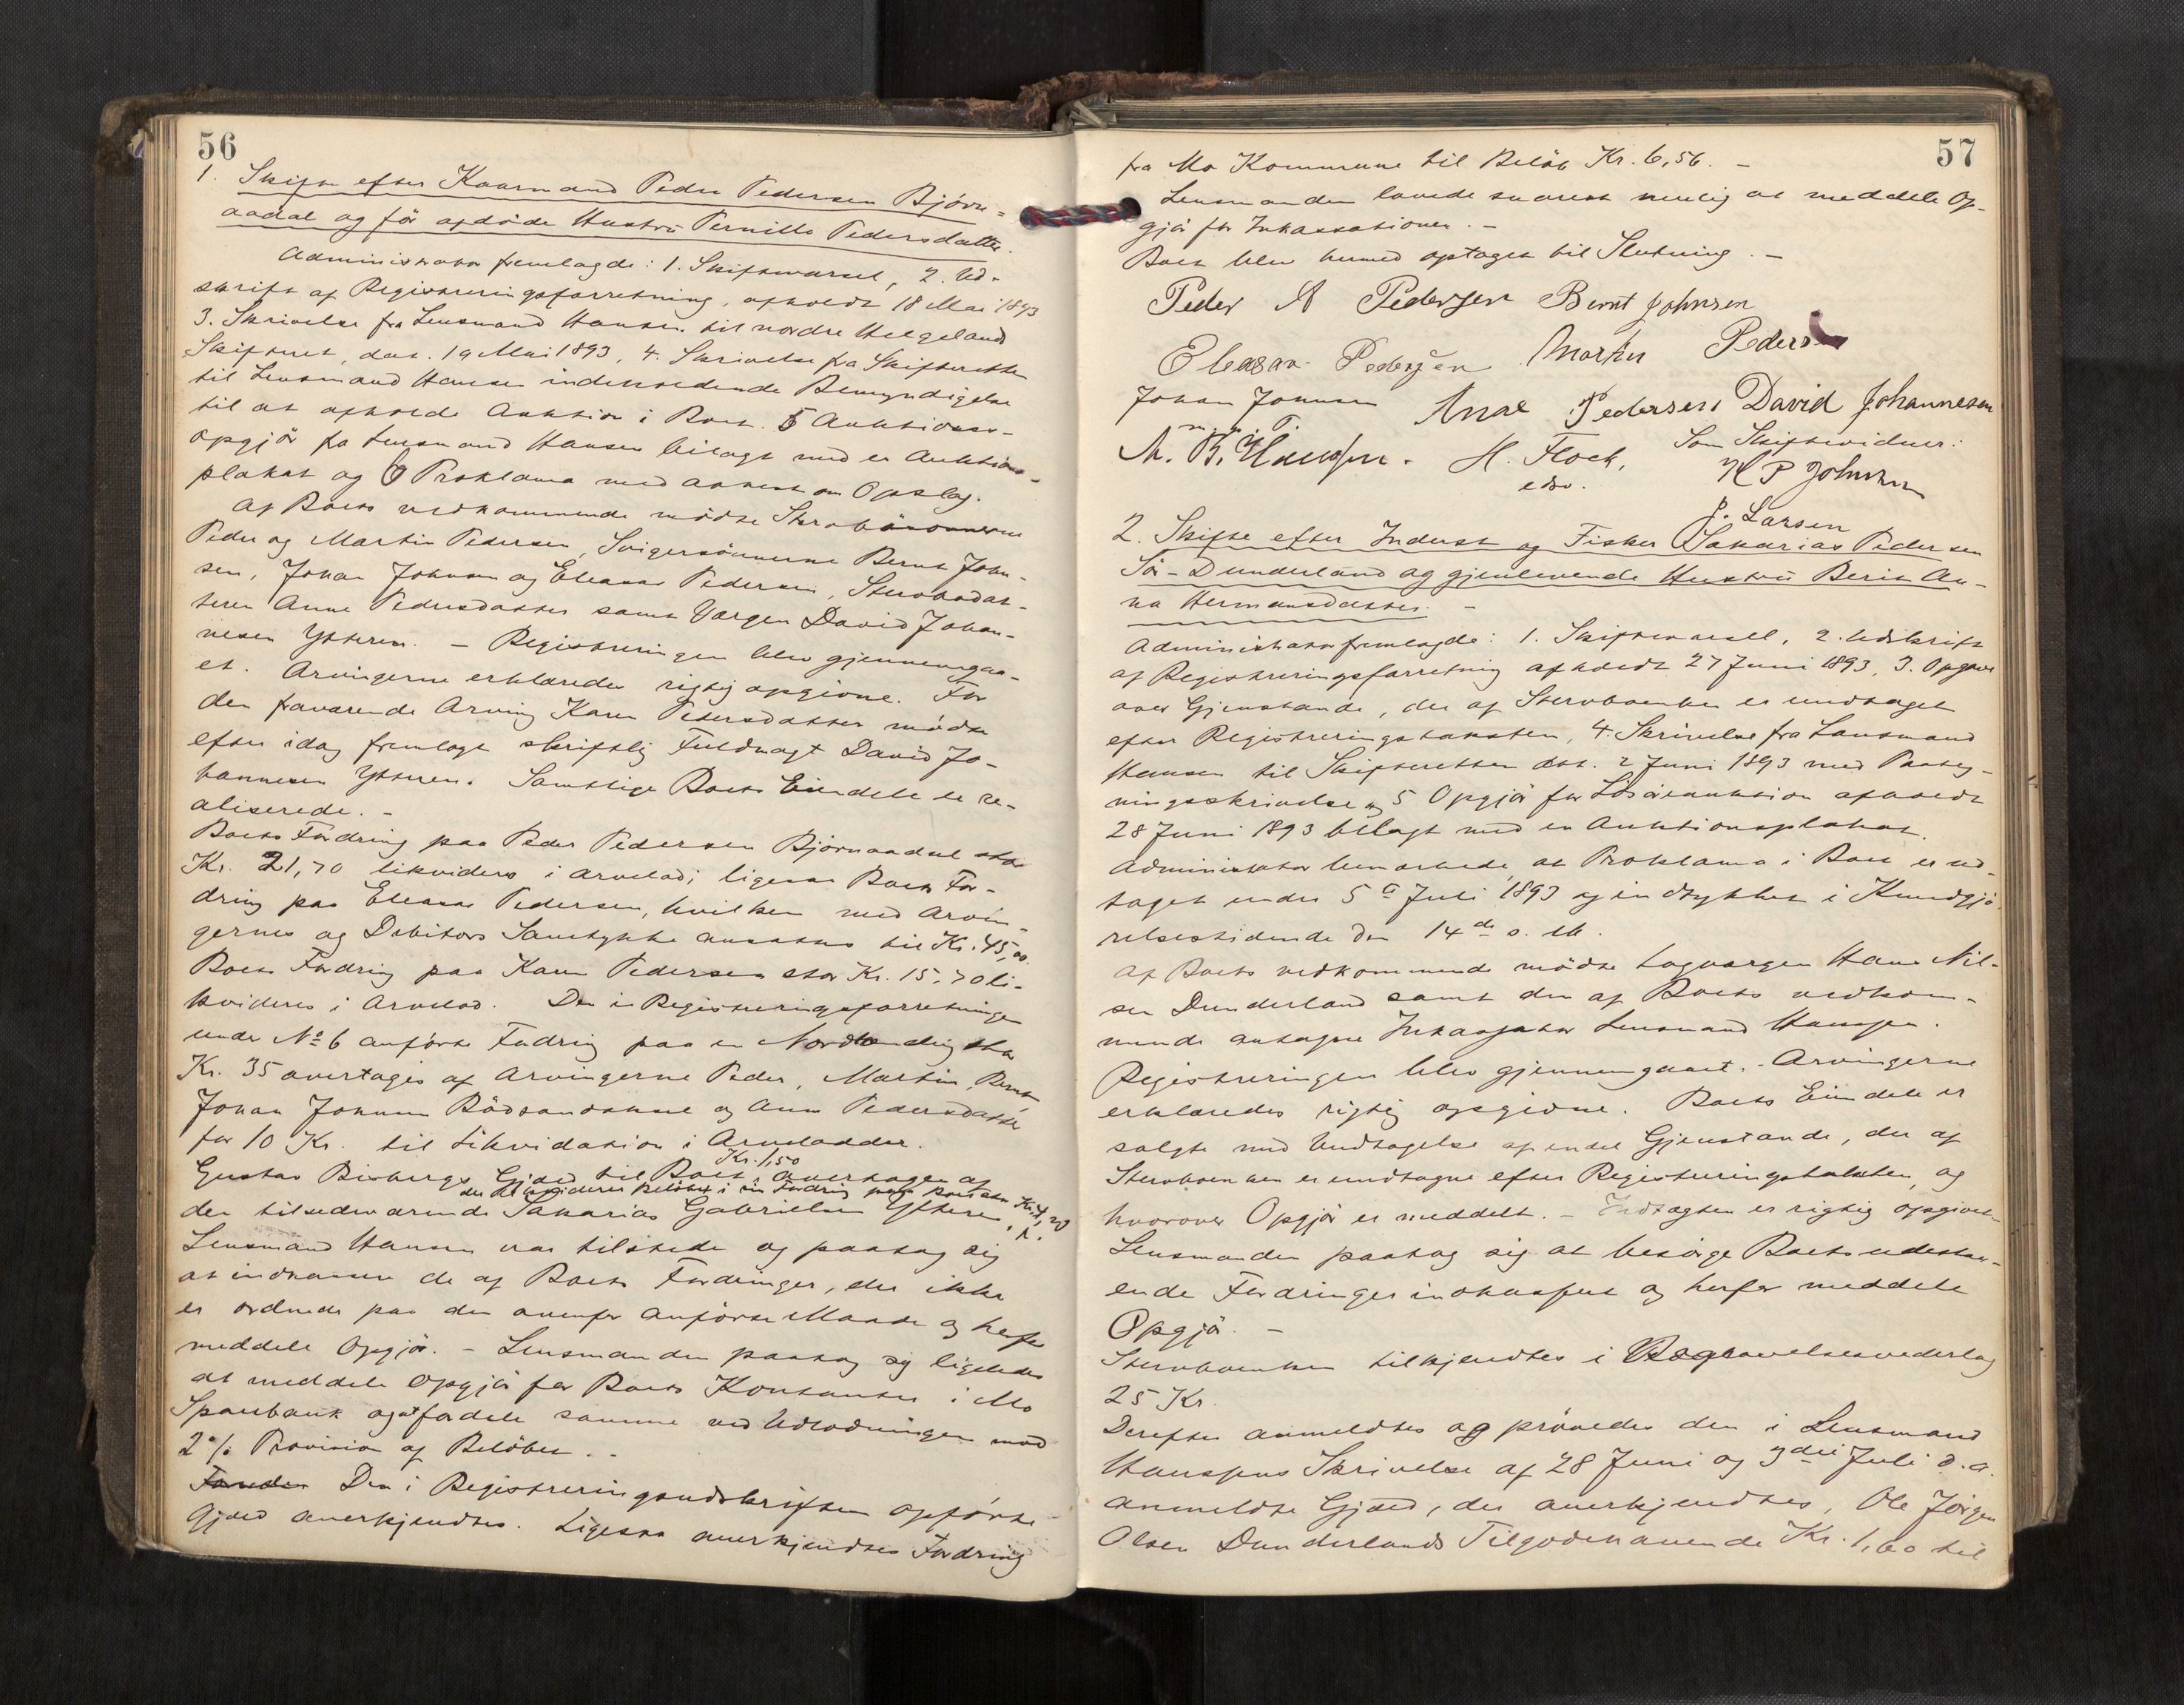 56
1. Skifte efter Kaarmand Peder Pedersen Bjørn=
aadal og før afdöde Hustrü Pernille Pedersdatter.
Administrator fremlagde: 1. Skiftevarsel, 2. Ud-
skrift af Registreringsforretning, afholdt 18 Mai 1893
3. Skrivelse fra Lensmand Hansen til nordre Helgeland
Skifteret, dat. 19 Mai 1893, 4. Skrivelse fra Skifteretten
til Lensmand Hansen indeholdende Bemyndigelse
til at afholde Auktion i Boet. 5 Auktions-
opgjör fra Lensmand Hansen bilagt med en Auktions-
plakat og 6 Proklama med Attest om Opslag.
Af Boets vedkommende mödte Stervbösönnerne
Peder og Martin Pedersen, Svigersönnerne Bernt John-
sen, Johan Johnsen og Eleasar Pedersen, Stervbodat-
teren Anne Pedersdatter samt Værgen David Johan-
nesen Ytteren. - Registreringen blev gjennemgaa-
et. Arvingerne erklæredes rigtig opgivne. For
den fraværende Arving Karen Pedersdatter mödte
efter idag fremlagt skriftlig Fuldmagt David Jo-
hannesen Ytteren. Samtlige Boets Eiendele er re-
aliserede. -
Boets Fordring paa Peder Pedersen Bjørnaadal stor
Kr. 21,70 likvideres i Arvelod; ligesaa Boets For-
dring paa Eleasar Pedersen, hvilken med Arvin-
gernes og Debitors Samtykke ansættes til Kr. 45,00.
Boets Fordring paa Karen Pedersen stor Kr. 15,70 li-
kvideres i Arvelod. Den i Registreringsforretningen
under No 6 anförte Fordring paa en Nordlænding stor
Kr. 35 overtages af Arvingerne Peder, Martin, Bernt,
Johan Johnsen og Anne Pedersdatter
for 10 Kr. til Likvidation i Arvelodder.
Kr. 1,50
Gustav Bisbergs Gjæld til Boet, overtages af
der likviderer Belöbet i sin Fordring paa Boet stor Kr. 4,20
den tilstedeværende Sakarias Gabrielsen Ytteren,
Lensmand Hansen var tilstede og paatog sig
at indkassere de af Boets Fordringer, der ikke
er ordnede paa den ovenfor anförte Maade og herfor
meddele Opgjör. - Lensmanden paatog sig ligeledes
at meddele Opgjör for Boets Kontanter i Mo
Sparebank og at fordele samme ved Udlodningen mod
2% Provision af Belöbet. -
Den i Registreringsudskriften opförte
Gjæld anerkjendtes. Ligesaa anerkjendtes Fordring
57
fra Mo Kommune til Belöb Kr. 6,56. -
Lensmanden lovede snarest mulig at meddele Op-
gjör for Inkassationen. -
Boet blev hermed optaget til Slutning. -
Peder A Pedersen Bernt Johnsen
Eleasar Pedersen Martin Pedersen
Johan Johnsen Anne Pedersen David Johannesen
m. p. P.
A. B. Hansen. H. Flock, Som Skiftevidner:
edsv. H P Johnsen
J. Larsen
2. Skifte efter Inderst og Fisker Sakarias Pedersen
Sör-Dunderland og gjenlevende Hustrü Berit An-
na Hermansdatter. -
Administrator fremlagde: 1. Skiftevarsel, 2. Udskrift
af Registreringsforretning afholdt 27 Juni 1893, 3. Opgave
over Gjenstande, der af Stervboenken er undtaget
efter Registreringstaksten, 4. Skrivelse fra Lensmand
Hansen til Skifteretten dat. 2 Juni 1893 med Paateg-
ningsskrivelse og 5 Opgjör for Lösöreauktion afholdt
28 Juni 1893 bilagt med en Auktionsplakat.
Administrator bemærkede, at Proklama i Boet er ud-
taget under 5te Juli 1893 og indrykket i Kundgjö-
relsestidende den 14de s. M.
Af Boets vedkommende mödte Lagværgen Hans Nil-
sen Dunderland samt den af Boets vedkom-
mende antagne Inkassator Lensmand Hansen.
Registreringen blev gjennemgaaet. - Arvingerne
erklæredes rigtig opgivne. Boets Eiendele er
solgte med Undtagelse af endel Gjenstande, der af
Stervboenken er undtagne efter Registreringstaksten, og
hvorover Opgjör er meddelt. - Indtægten er rigtig opgivet.
Lensmanden paatog sig at besörge Boets udestaa-
ende Fordringer indkasseret og herfor meddele
Opgjör. -
Stervboenken tilkjendtes i Begravelsesvederlag
25 Kr.
Derefter anmeldtes og prövedes den i Lensmand
Hansens Skrivelse af 28 Juni og 3die Juli d. a.
anmeldte Gjæld, der anerkjendtes, Ole Jörgen
Olsen Dunderlands Tilgodehavende Kr. 1,60 til